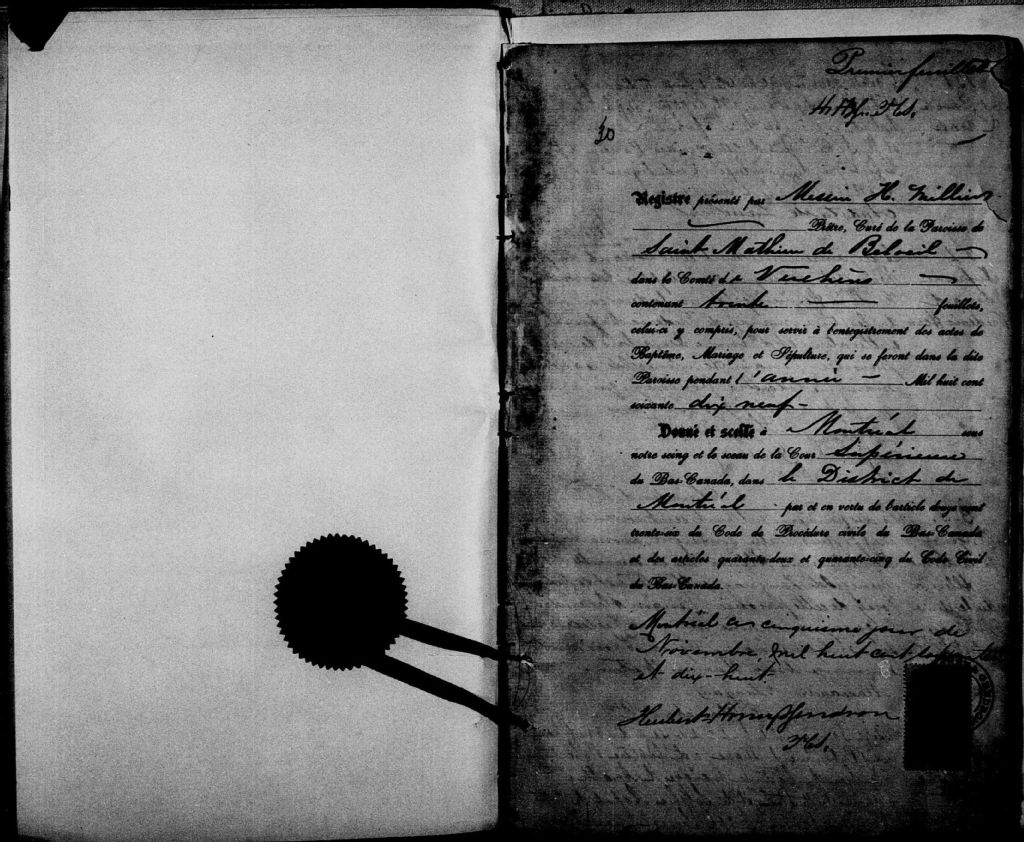 Premier feuillet
30
Registre présenté par Messire H. Millier
Prêtre, Curé de la Paroisse de
Saint Mathieu de Beloeil
dans le Comté de Verchères
contenant trente feuillets,
celui-ci y compris, pour servir à l'enregistrement des actes de
Baptême, Mariage et Sépulture, qui se feront dans la dite
Paroisse pendant l'année Mil huit cent
soixante dix neuf
Donné et scellé à Montréal sous
notre seing et le sceau de la Cour Supérieure
du Bas-Canada, dans le District de
Montréal par et en vertu de l'article douze cent
trente-six du Code de Procédure civile du Bas-Canada
et des articles quarante-deux et quarante-cinq du Code Civil
du Bas-Canada.
Montréal ce cinquième jour de
Novembre, mil huit cent soixante
et dix-huit